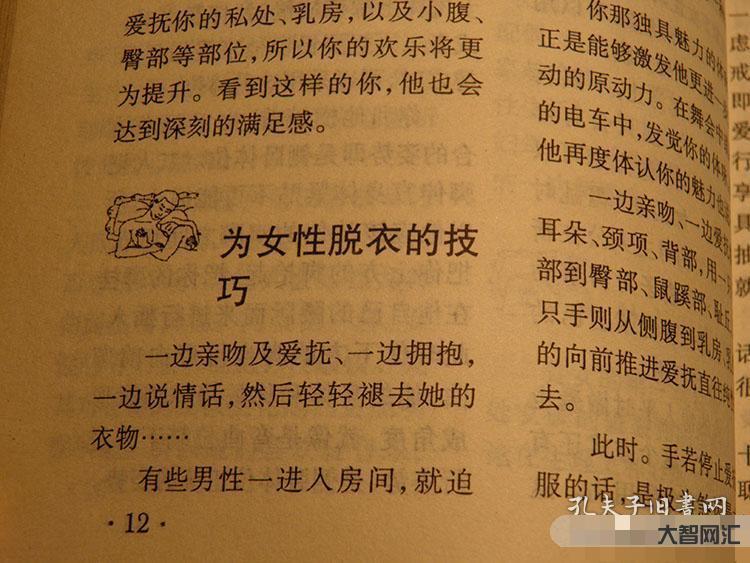 爱抚你的私处、乳房，以及小腹、
臀部等部位，所以你的欢乐将更
为提升。看到这样的你，他也会
达到深刻的满足感。
为女性脱衣的技
巧
一边亲吻及爱抚、一边拥抱，
一边说情话，然后轻轻褪去她的
衣物……
有些男性一进入房间，就迫
·12·
你那独具魅力的体
正是能够激发他更进一步
动的原动力。在舞会中
的电车中，发觉你的体
他再度体认你的魅力
一边亲吻、一边爱抚
耳朵、颈项、背部，用一
部到臀部、鼠蹊部、耻丘
只手则从侧腹到乳房、
的向前推进爱抚直往
去。
此时。手若停止爱
服的话，是极
一
虑
戒
即
爱
行
享
具
抽
就
话
很
十
取
孔夫子旧书网
大智网汇